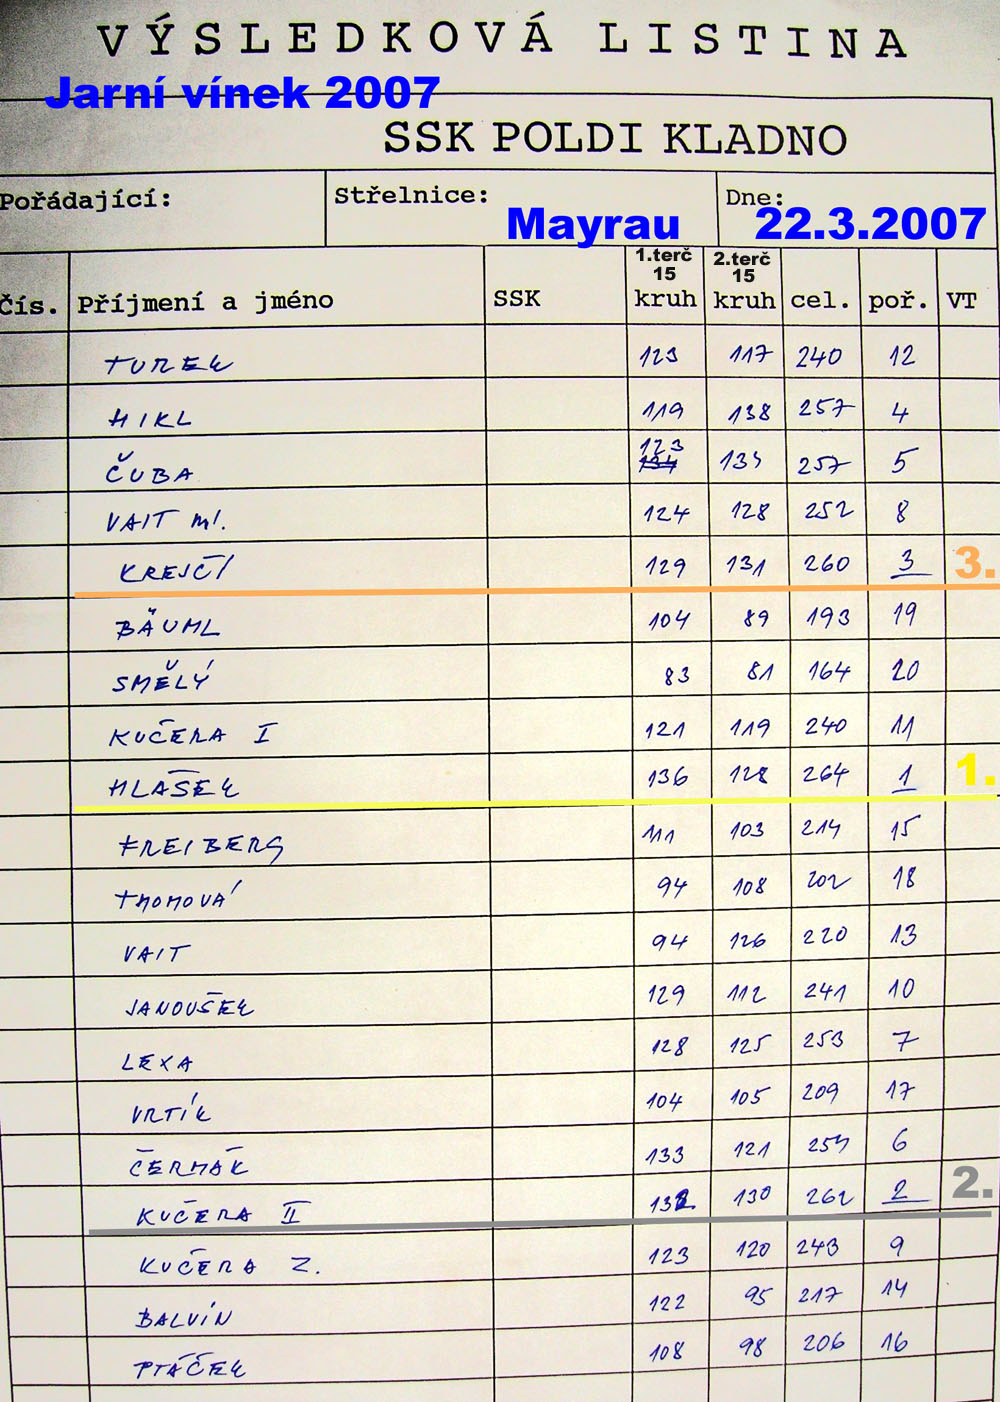 VÝSLEDKOVÁ LISTINA
Jarní vínek 2007
SSK POLDI KLADNO
Pořádající: Střelnice: Mayrau Dne: 22.3.2007
Čís. Příjmení a jméno SSK 1.terč 15 kruh 2.terč 15 kruh cel. poř. VT
TUREK 123 117 240 12
HIKL 119 138 257 4
ČUBA 123 134 134 257 5
VAIT ml. 124 128 252 8
KREJČÍ 129 131 260 3 3.
BÄUML 104 89 193 19
SMĚLÝ 83 81 164 20
KUČERA I 121 119 240 11
HLAŠEK 136 128 264 1 1.
FREIBERG 111 103 214 15
THOMOVÁ 94 108 202 18
VAIT 94 126 220 13
JANOUŠEK 129 112 241 10
LEXA 128 125 253 7
VRTÍK 104 105 209 17
ČERMÁK 133 121 254 6
KUČERA II 132 130 262 2 2.
KUČERA Z. 123 120 243 9
BALVÍN 122 95 217 14
PTÁČEK 108 98 206 16